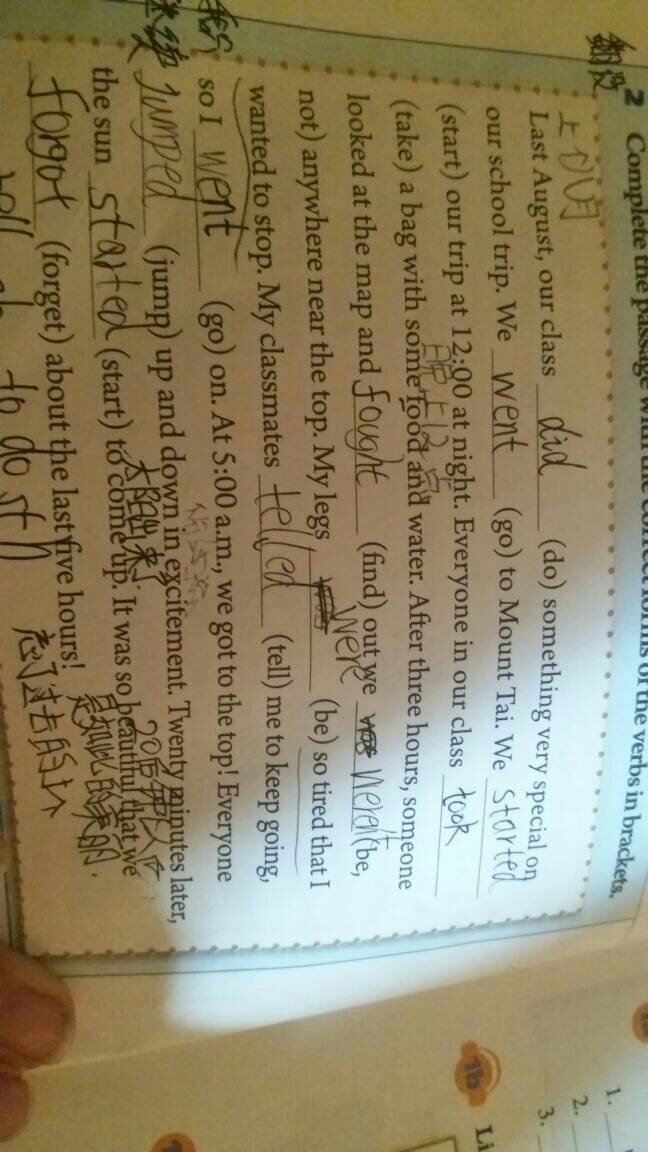 2 Complete the passage with the correct forms of the verbs in brackets.
翻译
上个八月
Last August, our class did (do) something very special on
our school trip. We went (go) to Mount Tai. We started
(start) our trip at 12:00 at night. Everyone in our class took
(take) a bag with some food and water. After three hours, someone
looked at the map and fought (find) out we weren't (be,
not) anywhere near the top. My legs were (be) so tired that I
wanted to stop. My classmates telled (tell) me to keep going,
so I went (go) on. At 5:00 a.m., we got to the top! Everyone
jumped (jump) up and down in excitement. Twenty minutes later,
20分钟以后
the sun started (start) to come up. It was so beautiful that we
是如此的美的.
forgot (forget) about the last five hours!
忘了过去的5个
tell to do sth
1b Li
1.
2.
3.